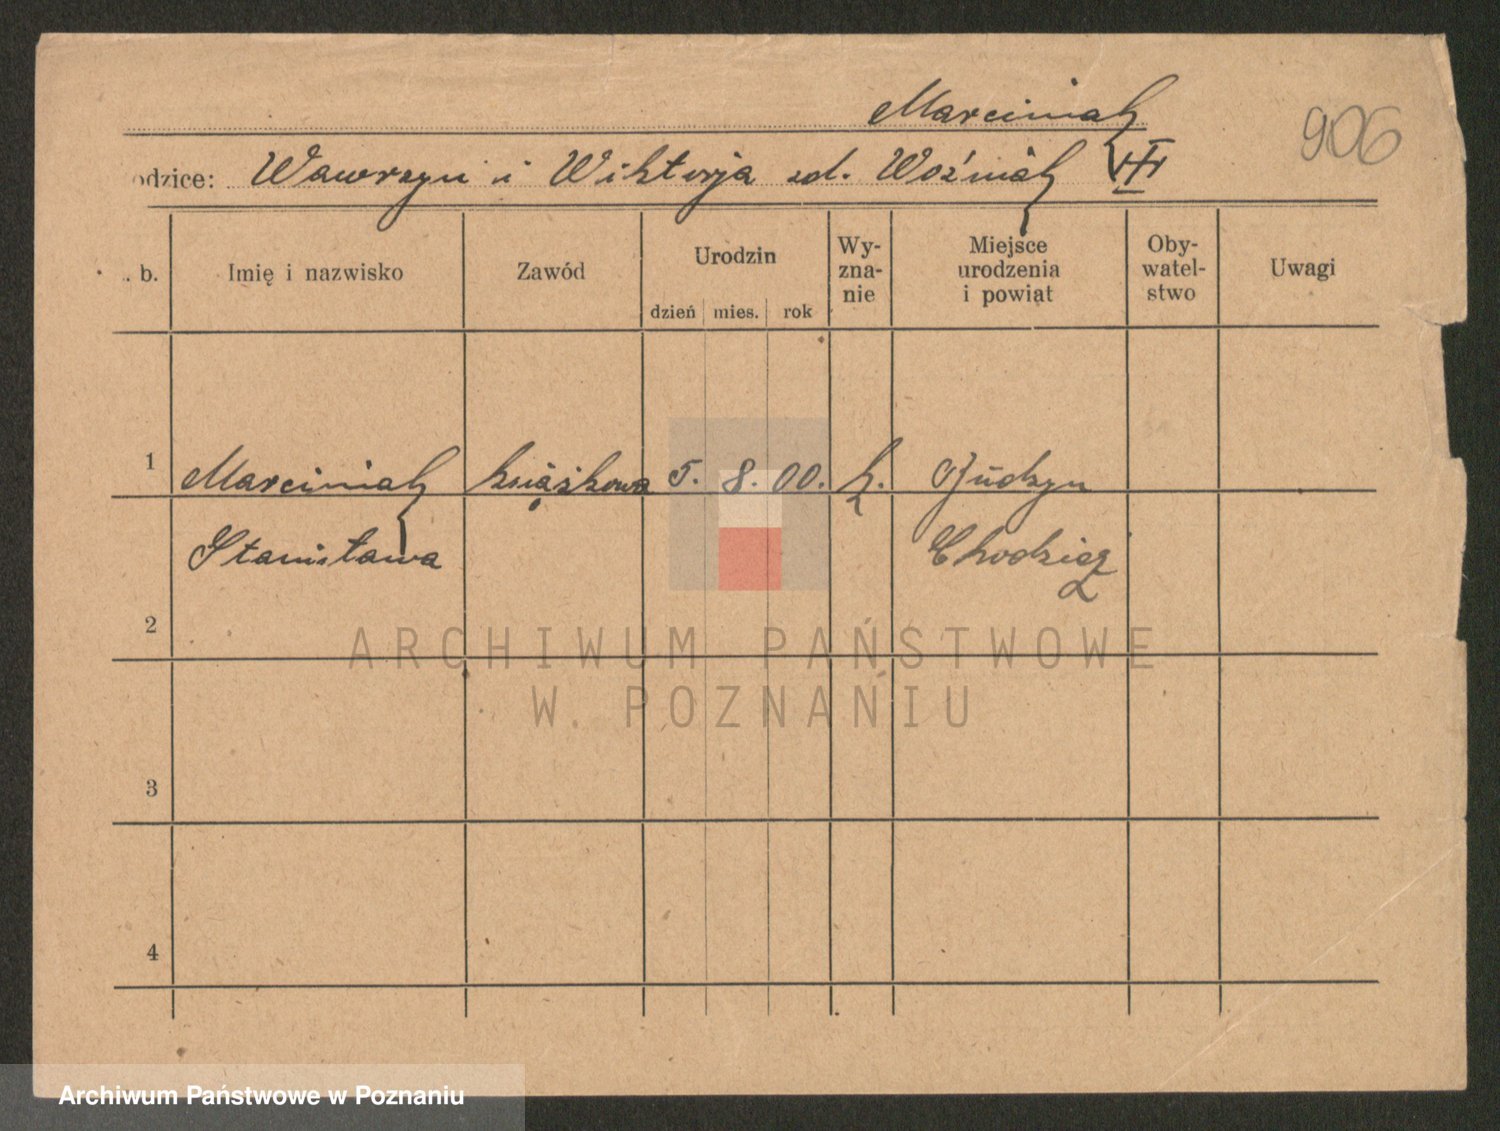 Marciniak
906
odzice: Wawrzyn i Wiktorja zd. Woźniak VII
. b. Imię i nazwisko Zawód Urodzin Wy-zna-nie Miejsce urodzenia i powiat Oby-watel-stwo Uwagi
dzień mies. rok
1 Marciniak książkowa 5. 8. 00. k. Budzyn
Stanisława Chodzież
2
ARCHIWUM PAŃSTWOWE
W. POZNANIU
3
4
Archiwum Państwowe w Poznaniu